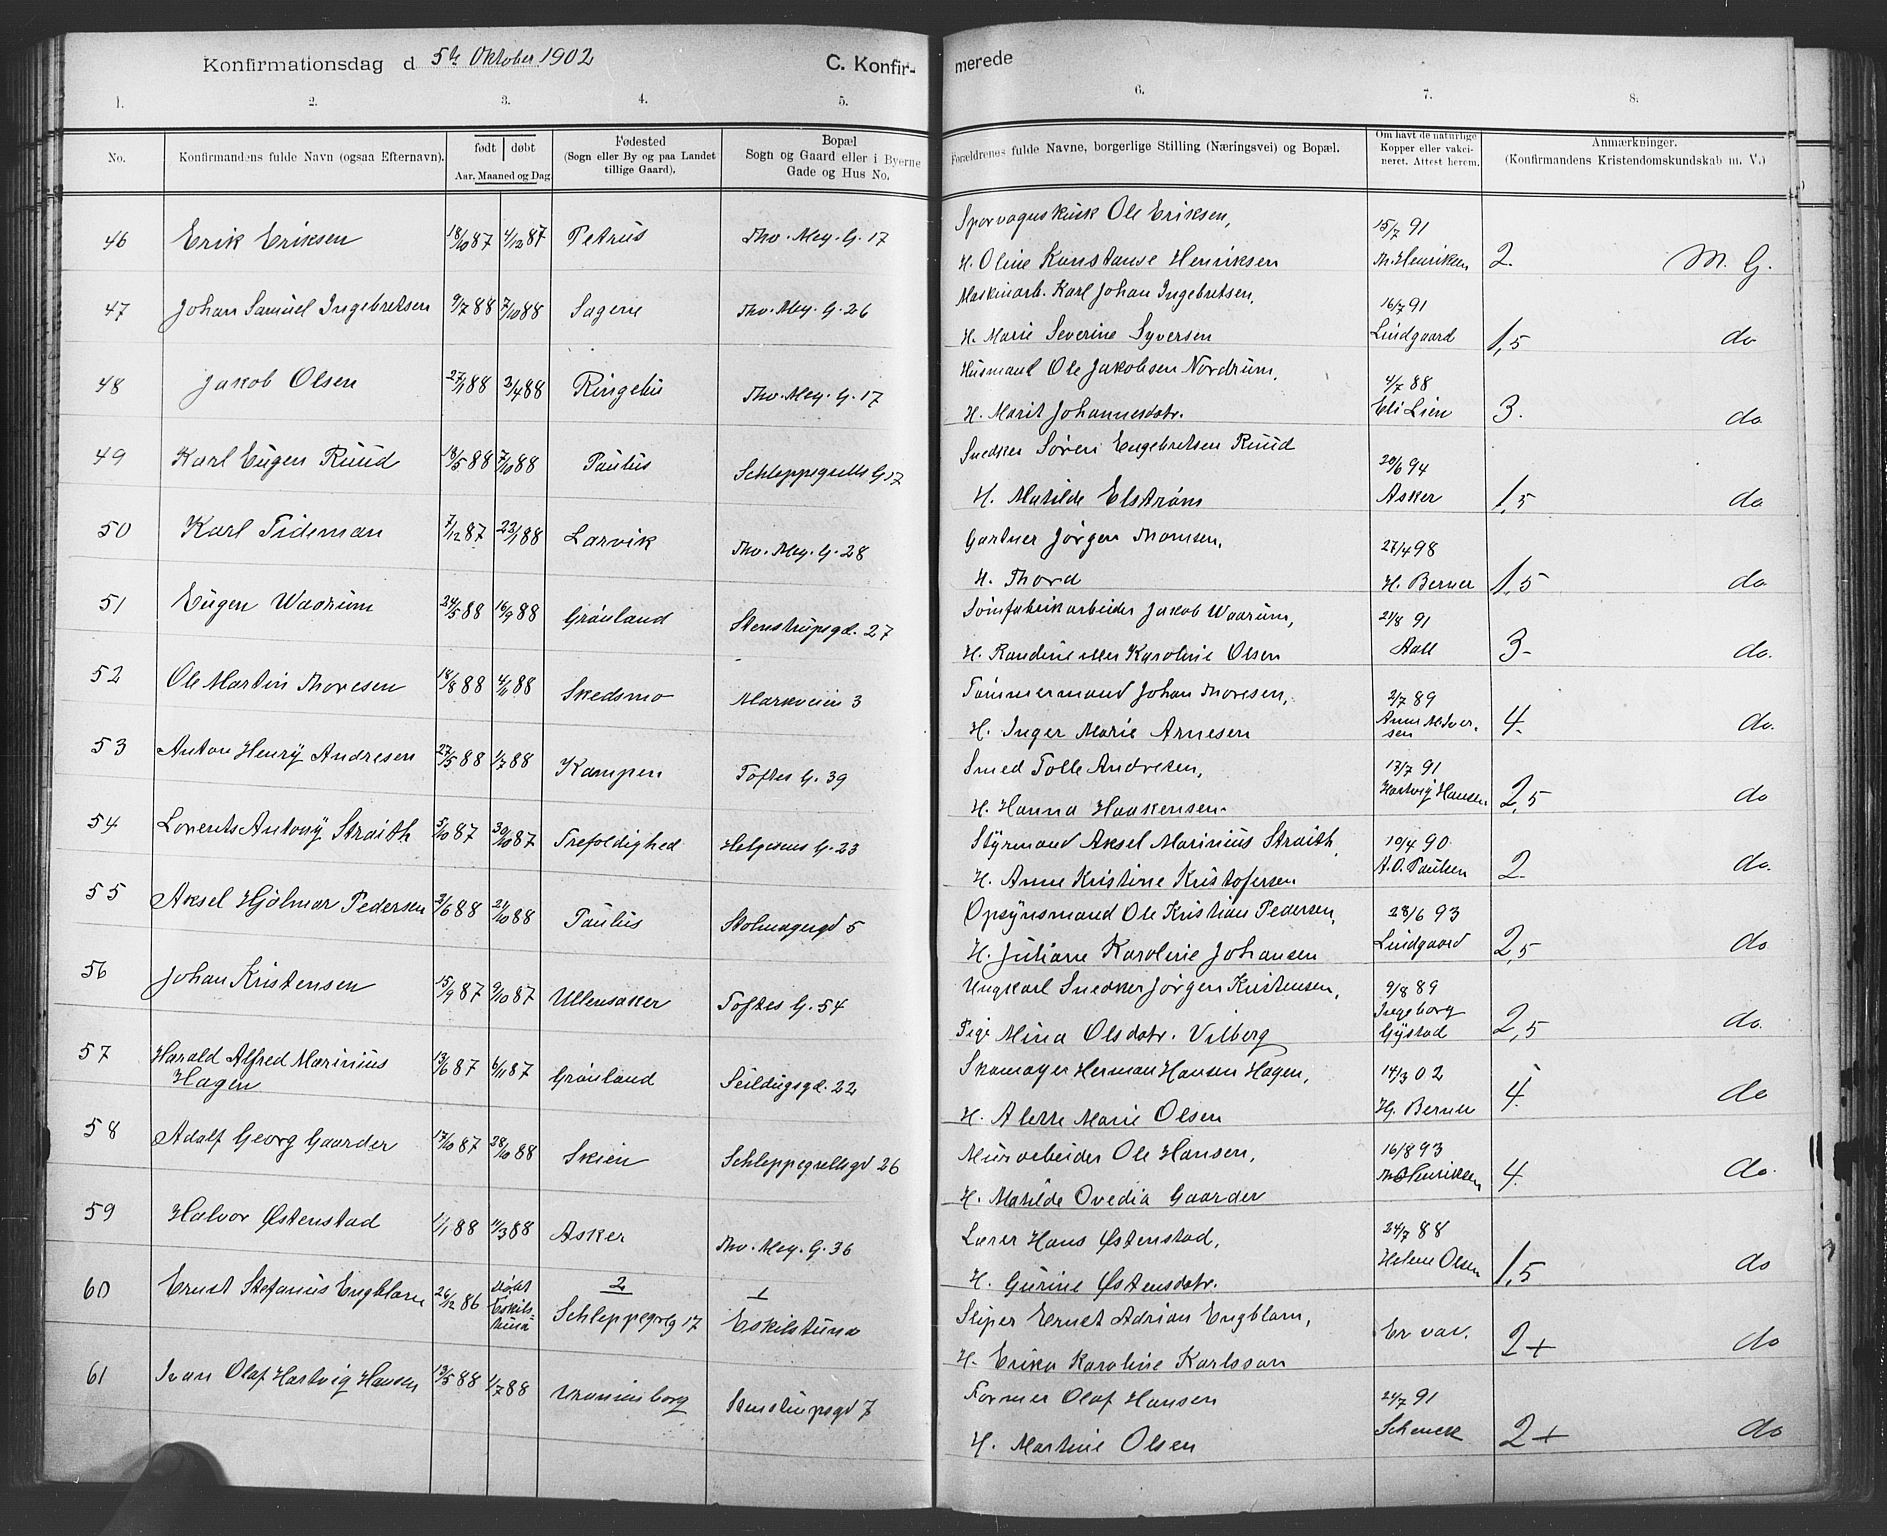 Konfirmationsdag d 5te Oktober 1902 C. Konfir- merede
1. 2. 3. 4. 5. 6. 7. 8.
No. Konfirmandens fulde Navn (ogsaa Efternavn). født døbt Aar, Maaned og Dag. Fødested (Sogn eller By og paa Landet tillige Gaard). Bopæl Sogn og Gaard eller i Byerne Gade og Hus No. Forældrenes fulde Navne, borgerlige Stilling (Næringsvei) og Bopæl. Om havt de naturlige Kopper eller vakcineret. Attest herom. Anmærkninger. (Konfirmandens Kristendomskundskab m. V.)
46 Erik Eriksen 18/10 87 4/12 87 Petrus Thv. Mey. G. 17 Sporvognskusk Ole Eriksen, 15/7 91
H. Oline Konstanse Henriksen Th. Henriksen 2. M. G.
47 Johan Samuel Ingebretsen 9/7 88 7/10 88 Sagene Thv. Mey. G. 26 Maskinarb. Karl Johan Ingebretsen, 16/7 91
H. Marie Severine Syversen Lindgaard 1,5 do
48 Jakob Olsen 27/1 88 2/4 88 Ringebu Thv. Mey. G. 17 Husmand Ole Jakobsen Nordrum, 4/7 88
H. Marit Johannesdatr. Eli Lien 3. do
49 Karl Eugen Ruud 18/5 88 7/10 88 Paulus Schleppegrells G 17 Snedker Søren Engebretsen Ruud 20/6 94
H. Matilde Elstrøm Asker 1,5 do
50 Karl Tideman 7/12 87 22/1 88 Larvik Thv. Mey. G. 28 Gartner Jørgen Thomsen, 27/4 98
H. Thora H. Berner 1,5 do
51 Eugen Waarum 24/5 88 16/9 88 Grønland Stenstrupsgd. 27 Sømfabrikarbeider Jakob Waarum, 21/8 91
H. Randine eller Karoline Olsen Aall 3- do.
52 Ole Martin Thoresen 18/8 88 88 Skedsmo Markveien 3 Tømmermand Johan Thoresen, 2/7 89
H. Inger Marie Arnesen Anne Halvorsen 4. do.
53 Anton Henry Andresen 27/5 88 1/7 88 Kampen Toftes G. 39 Smed Tolle Andresen, 17/7 91
H. Hanna Haakensen. Hartvig Hansen 2,5 do
54 Lorents Antony Straith 5/10 87 30/10 87 Trefoldighed Helgesens G. 23 Styrmand Aksel Marinius Straith, 10/4 90
H. Anne Kristine Kristofersen A. O. Paulsen 2. do.
55 Aksel Hjalmar Pedersen 2/6 88 21/10 88 Paulus Stolmagergd 5 Opsynsmand Ole Kristian Pedersen, 28/6 93
H. Juliane Karoline Johansen Lindgaard 2,5 do
56 Johan Kristensen 15/9 87 9/10 87 Ullensaker Toftes G. 54 Ungkarl Snedker Jørgen Kristensen, 9/8 89
Pige Mina Olsdatr. Vilberg Ingeborg Gystad 2,5 do.
57 Harald Alfred Marinius 13/6 87 6/11 87 Grønland Seildugsgd. 22 Skomager Herman Hansen Hagen, 14/3 02
Hagen H. Alette Marie Olsen Hj. Berner 4. do
58 Adolf Georg Gaarder 17/10 87 28/10 88 Skien Schleppegrellsgd 26 Murarbeider Ole Hansen, 16/8 93
H. Matilde Ovedia Gaarder Th. Henriksen 4. do.
59 Halvor Østenstad 1/1 88 11/3 88 Asker Thv. Mey. G. 36 Lærer Hans Østenstad, 24/7 88
H. Gurine Østensdatr. Helene Olsen 1,5 do
60 Ernst Stefanius Engblom 26/12 86 døbt Eskilstuna 2 Schleppegrelg 17 1 Eskilstuna Sliper Ernst Adrian Engblom, Er vac.
H. Erika Karoline Karlsson 2+ do
61 Ivan Olaf Hartvig Hansen 13/5 88 1/7 88 Uranienborg Stenstrupsgd 7 Former Olaf Hansen 24/7 91
H. Martine Olsen Schenck 2+ do